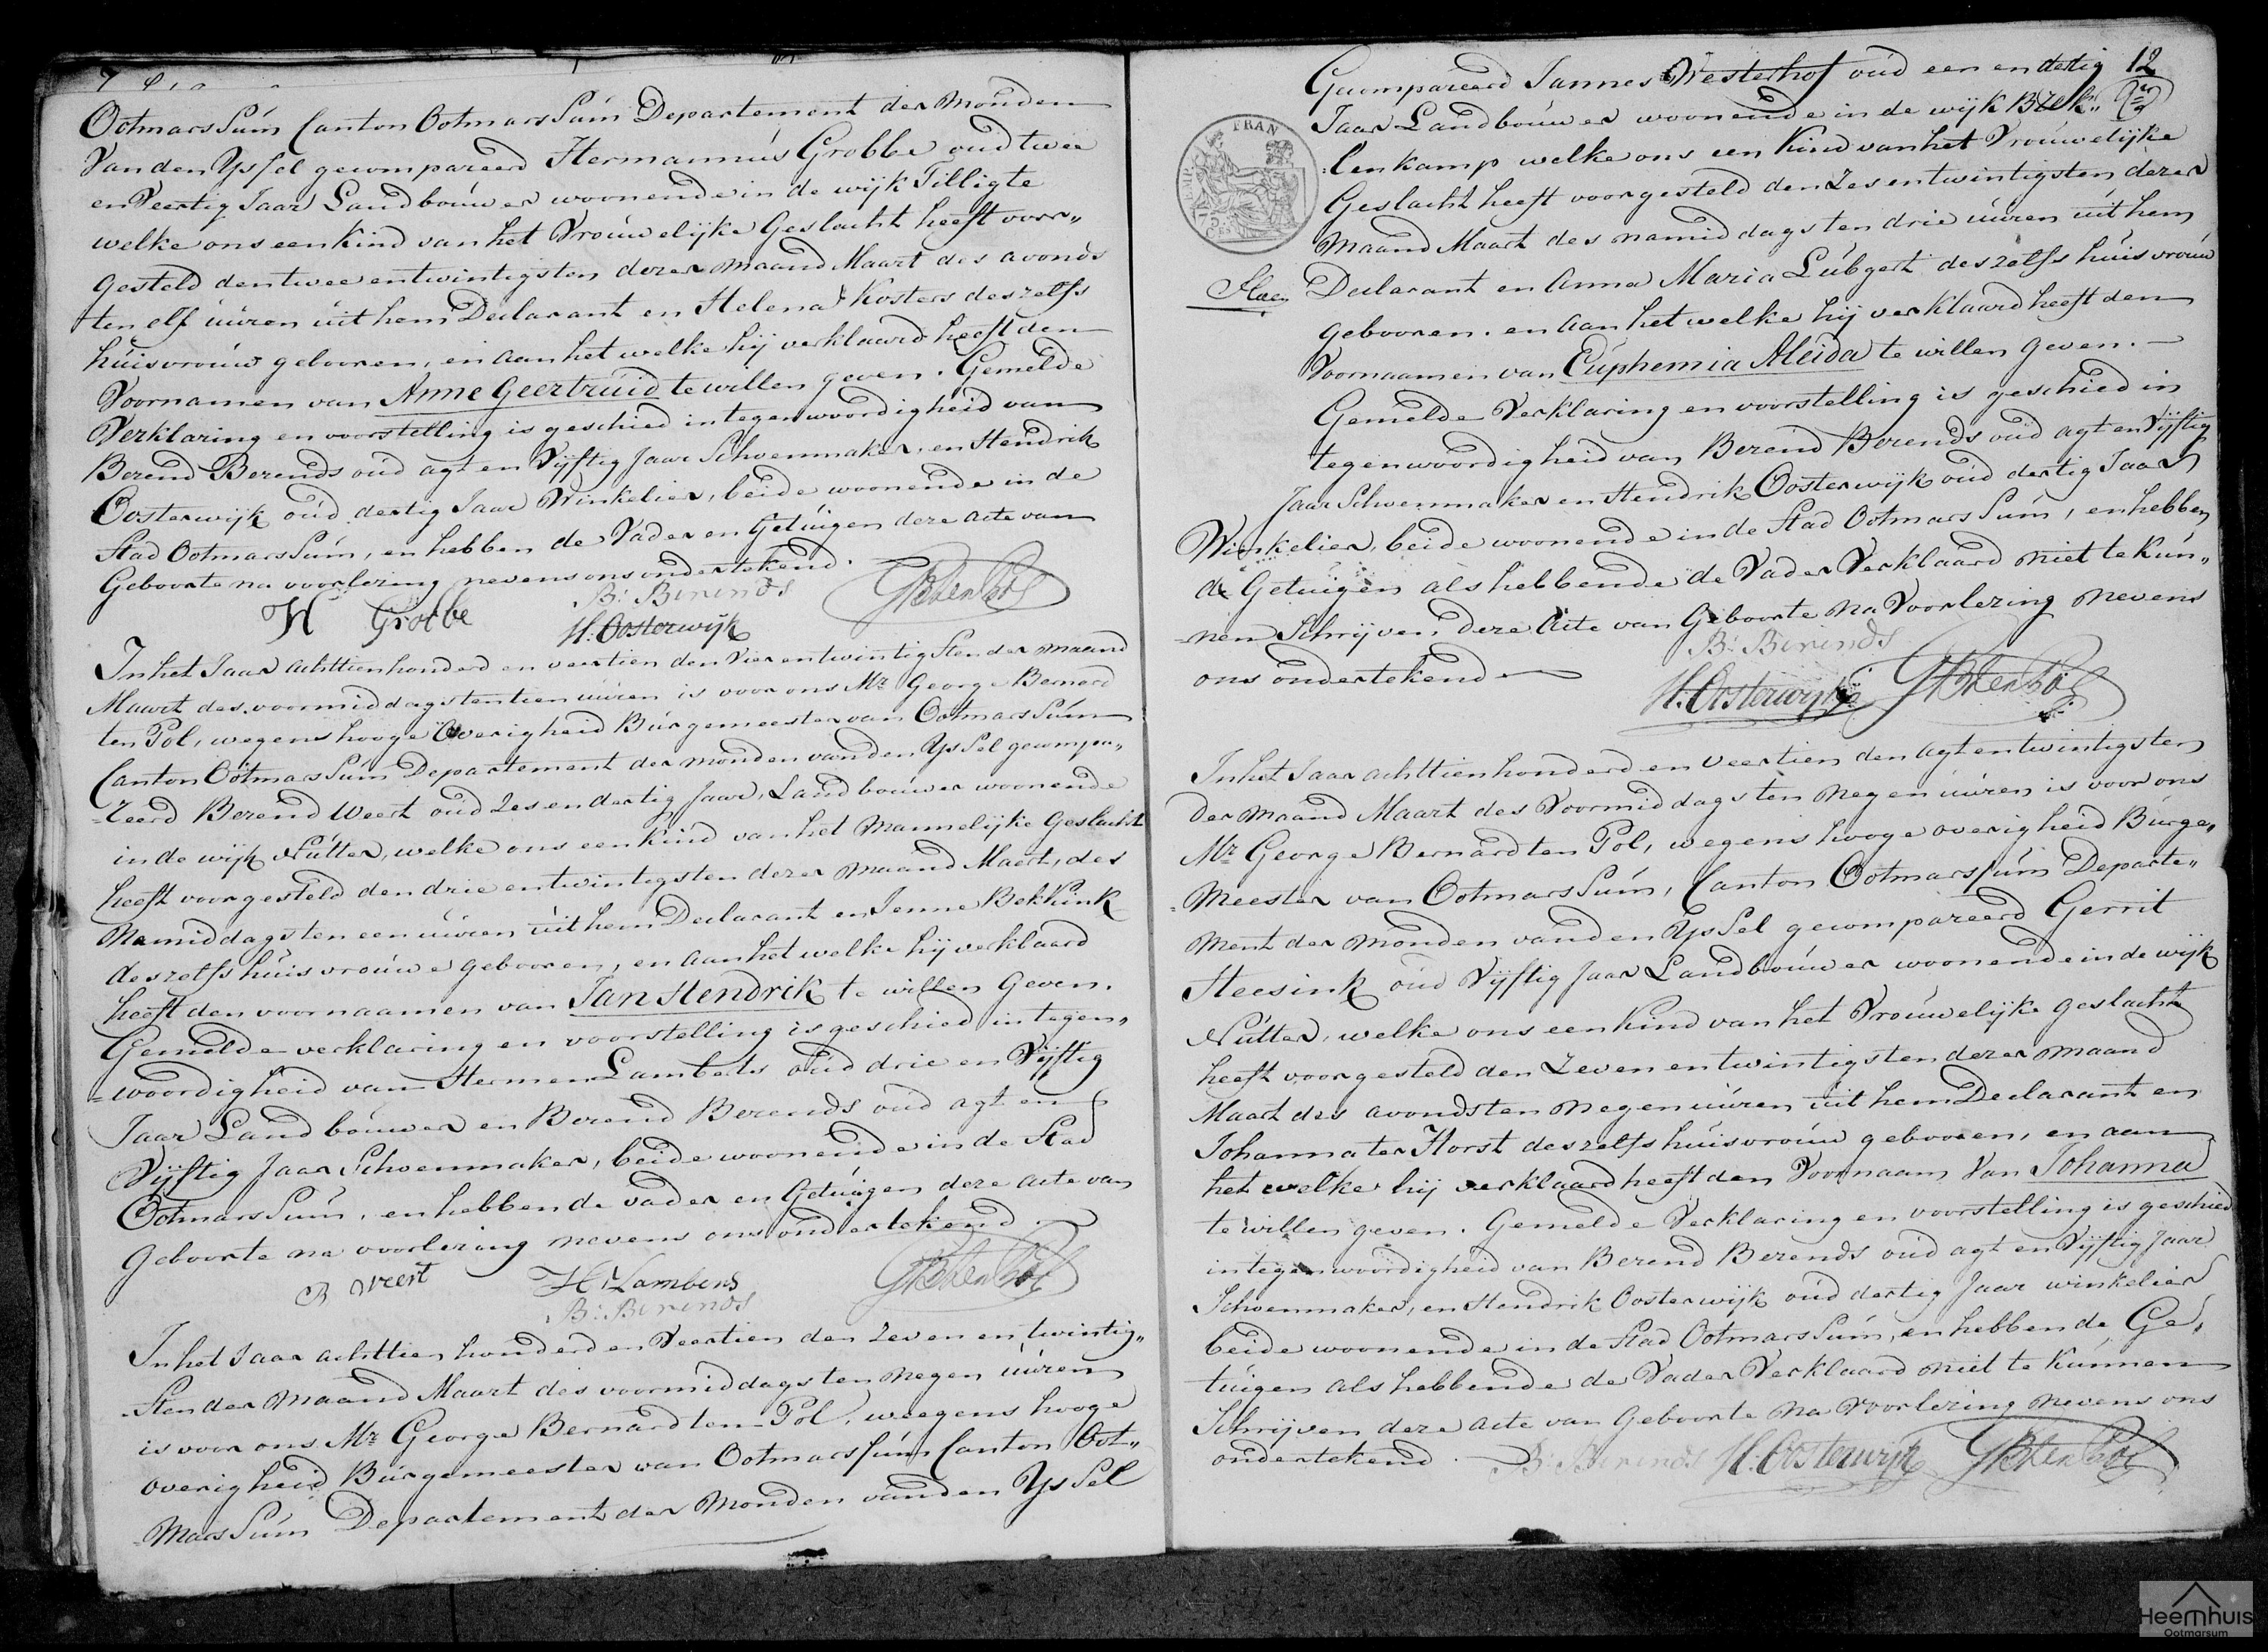 Ootmarssúm Canton Ootmarssúm Departement der Monden
Van den Yssel gecompareerd Hermannús Grobbe oúd twee
en Veertig Jaar Landboúwer woonende in de wijk Tilligte
welke ons een Kind van het Vroúwelijke Geslacht heeft voor„
gesteld den twee entwintigsten dezer maand Maart des avonds
ten elf úúren úit hem Declarant en Helena Kosters deszelfs
húisvroúw gebooren, en aan het welke hij verklaard heeft den
Voornamen van Anne Geertrúid te willen geven. Gemelde
Verklaring en voorstelling is geschied in tegenwoordigheid van
Berend Berends oúd agt en Vijftig Jaar Schoenmaker, en Hendrik
Oosterwijk oúd dertig Jaar Winkelier, beide woonende in de
Stad Ootmarssúm, en hebben de Vader en Getúigen deze acte van
Geboorte na voorlezing nevens ons ondertekend.
H Grobbe B: Berends GBtenPol
H. Oosterwijk
In het Jaar achttienhonderd en veertien den Vier entwintigsten der maand
Maart des voormiddags ten tien úúren is voor ons Mr. George Bernard
ten Pol, wegens hooge Overigheid Búrgemeester van Ootmarssúm
Canton Ootmarssúm Departement der monden van den Yssel gecompa„
=reerd Berend Weert oúd Zes en dertig Jaar, Landboúwer woonende
in de wijk Nútter, welke ons een kind van het Mannelijke Geslacht
heeft voorgesteld den drie entwintigsten dezer maand Maert, des
Namiddags ten een úúren úit hem Declarant en Jenne Bekkink
deszelfs húisvroúwe gebooren, en aan het welke hij verklaard
heeft den voornaamen van Jan Hendrik te willen Geven.
Gemelde verklaring en voorstelling is geschied in tegen„
=woordigheid van Hermen Lamberts oúd drie en Vijftig
Jaar Landboúwer en Berend Berends oúd agt en
Vijftig Jaar Schoenmaker, beide woonende in de Stad
Ootmarssúm, en hebben de vader en Getúigen deze acte van
Geboorte na voorlezing nevens ons ondertekend.
B Weert H: Lambers GBtenPol
B: Berends
In het Jaar achttien honderd en Veertien den Zeven en twintig„
=sten der maand Maart des voormiddags ten negen úúren
is voor ons Mr. George Bernard ten Pol, weegens hooge
overigheid Búrgemeester van Ootmarssúm Canton Oot„
=marssúm Departement der Monden van den Yssel
12
Gecompareerd Jannes Westerhof oúd een en dertig
Jaar Landboúwer woonende in de wijk Brek„
=lenkamp welke ons een Kind van het Vroúwelijke
Geslacht heeft voorgesteld den Zes entwintigsten dezer
maand Maart des namiddags ten drie úúren úit hem
Declarant en Anna Maria Lúbgert deszelfs húisvroúw
gebooren. en aan het welke hij verklaard heeft den
Voornaamen van Eúphemia Aleida te willen Geven.
Gemelde Verklaring en voorstelling is geschied in
tegenwoordigheid van Berend Berends oúd agt en Vijftig
Jaar Schoenmaker en Hendrik Oosterwijk oúd dertig Jaar
Winkelier, beide woonende in de Stad Ootmarssúm, en hebben
de Getúigen als hebbende de Vader Verklaard niet te kún„
=nen Schrijven deze Acte van Geboorte Na Voorlezing Nevens
ons ondertekend B: Berends
H. Oosterwijk GBtenPol
In het Jaar achttienhonderd en veertien den agtentwintigsten
der maand Maart des Voormiddags ten negen úúren is voor ons
Mr. George Bernard ten Pol, wegens hooge overigheid Búrge„
=meester van Ootmarssúm, Canton Ootmarssúm Departe„
ment der Monden van den Yssel gecompareerd Gerrit
Heesink oúd Vijftig Jaar Landboúwer woonende in de wijk
Nútter, welke ons een Kind van het Vroúwelijke geslacht
heeft voorgesteld den Zeven entwintigsten dezer maand
Maart des avonds ten negen úúren úit hem Declarant en
Johanna ter Horst deszelfs húisvroúw gebooren, en aan
het welke hij verklaard heeft den Voornaam Van Johanna
te willen geven. Gemelde Verklaring en voorstelling is geschied
in tegenwoordigheid van Berend Berends oúd agt en Vijftig Jaar
Schoenmaker, en Hendrik Oosterwijk oúd dertig Jaar winkelier
beide woonende in de Stad Ootmarssúm, en hebben de Ge„
túigen als hebbende de Vader Verklaard niet te kúnnen
Schrijven deze acte van Geboorte Na Voorlezing nevens ons
ondertekend. B: Berends H. Oosterwijk GBtenPol
FRAN
75
Heemhuis
Ootmarsum